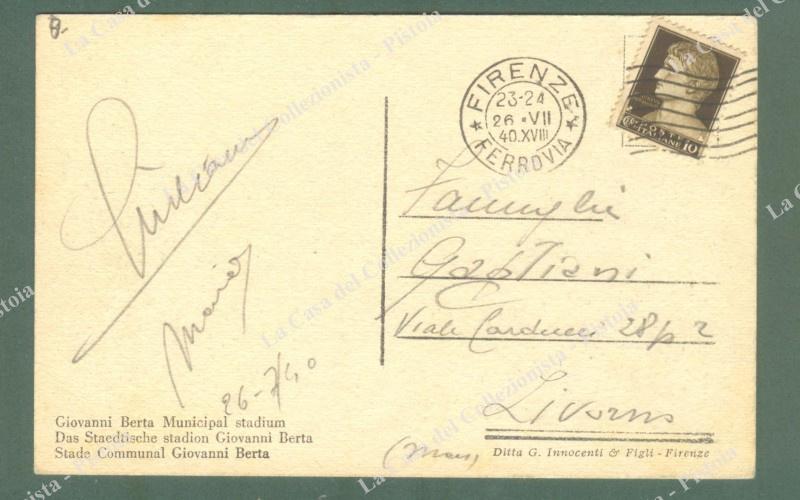 FIRENZE
23-24
26 • VII
40.XVIII
FERROVIA
POSTE
ITALIANE 10
Famiglia
Gagliani
Viale Carducci 28 p 2
Livorno
Maria
26-7-40
Giovanni Berta Municipal stadium
Das Staedtische stadion Giovanni Berta
Stade Communal Giovanni Berta
Ditta G. Innocenti & Figli - Firenze
La Casa del Collezionista - Pistoia